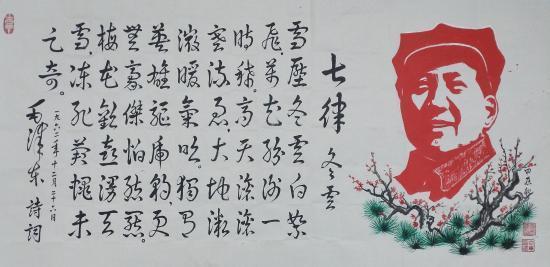 七律 冬雲
雪壓冬雲白絮
飛,萬花紛謝一
時稀。高天滾滾
寒流急,大地微
微暖氣吹。獨有
英雄驅虎豹,更
無豪傑怕熊羆。
梅花歡喜漫天
雪,凍死蒼蠅未
足奇。
一九六二年十二月二十六日
毛澤東詩詞